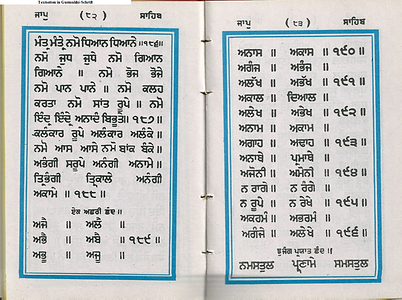 Textseiten in Gurmukhi-Schrift
ਜਾਪੁ (੮੨) ਸਾਹਿਬ
ਮੰਤ੍ਰ ਮੰਤ੍ਰੇ ਨਮੋ ਧਿਆਨ ਧਿਆਨੇ ॥੧੮੬॥
ਨਮੋ ਜੁਧ ਜੁਧੇ ਨਮੋ ਗਿਆਨ
ਗਿਆਨੇ ॥ ਨਮੋ ਭੋਜ ਭੋਜੇ
ਨਮੋ ਪਾਨ ਪਾਨੇ ॥ ਨਮੋ ਕਲਹ
ਕਰਤਾ ਨਮੋ ਸਾਂਤ ਰੂਪੇ ॥ ਨਮੋ
ਇੰਦ੍ਰ ਇੰਦ੍ਰੇ ਅਨਾਦੰ ਬਿਭੂਤੇ॥ ੧੮੭॥
ਕਲੰਕਾਰ ਰੂਪੇ ਅਲੰਕਾਰ ਅਲੰਕੇ॥
ਨਮੋ ਆਸ ਆਸੇ ਨਮੋ ਬਾਂਕ ਬੰਕੇ॥
ਅਭੰਗੀ ਸਰੂਪੇ ਅਨੰਗੀ ਅਨਾਮੇ॥
ਤ੍ਰਿਭੰਗੀ ਤ੍ਰਿਕਾਲੇ ਅਨੰਗੀ
ਅਕਾਮੇ ॥ ੧੮੮ ॥
ਏਕ ਅਛਰੀ ਛੰਦ॥
ਅਜੈ ॥ ਅਲੈ ॥
ਅਭੈ ॥ ਅਬੈ ॥ ੧੮੯॥
ਅਭੂ ॥ ਅਜੂ ॥
ਜਾਪੁ (੮੩) ਸਾਹਿਬ
ਅਨਾਸ ॥ ਅਕਾਸ ॥ ੧੯੦॥
ਅਗੰਜ ॥ ਅਭੰਜ ॥
ਅਲੱਖ ॥ ਅਭੱਖ ॥ ੧੯੧॥
ਅਕਾਲ ॥ ਦਿਆਲ ॥
ਅਲੇਖ ॥ ਅਭੇਖ ॥ ੧੯੨॥
ਅਨਾਮ ॥ ਅਕਾਮ ॥
ਅਗਾਹ ॥ ਅਢਾਹ ॥ ੧੯੩॥
ਅਨਾਥੇ ॥ ਪ੍ਰਮਾਥੇ ॥
ਅਜੋਨੀ ॥ ਅਮੋਨੀ ॥ ੧੯੪॥
ਨ ਰਾਗੇ ॥ ਨ ਰੰਗੇ ॥
ਨ ਰੂਪੇ ॥ ਨ ਰੇਖੇ ॥ ੧੯੫॥
ਅਕਰਮੰ ॥ ਅਭਰਮੰ ॥
ਅਗੰਜੇ ॥ ਅਲੇਖੇ ॥ ੧੯੬॥
ਭੁਜੰਗ ਪ੍ਰਯਾਤ ਛੰਦ॥
ਨਮਸਤੁਲ ਪ੍ਰਣਾਮੇ ਸਮਸਤੁਲ